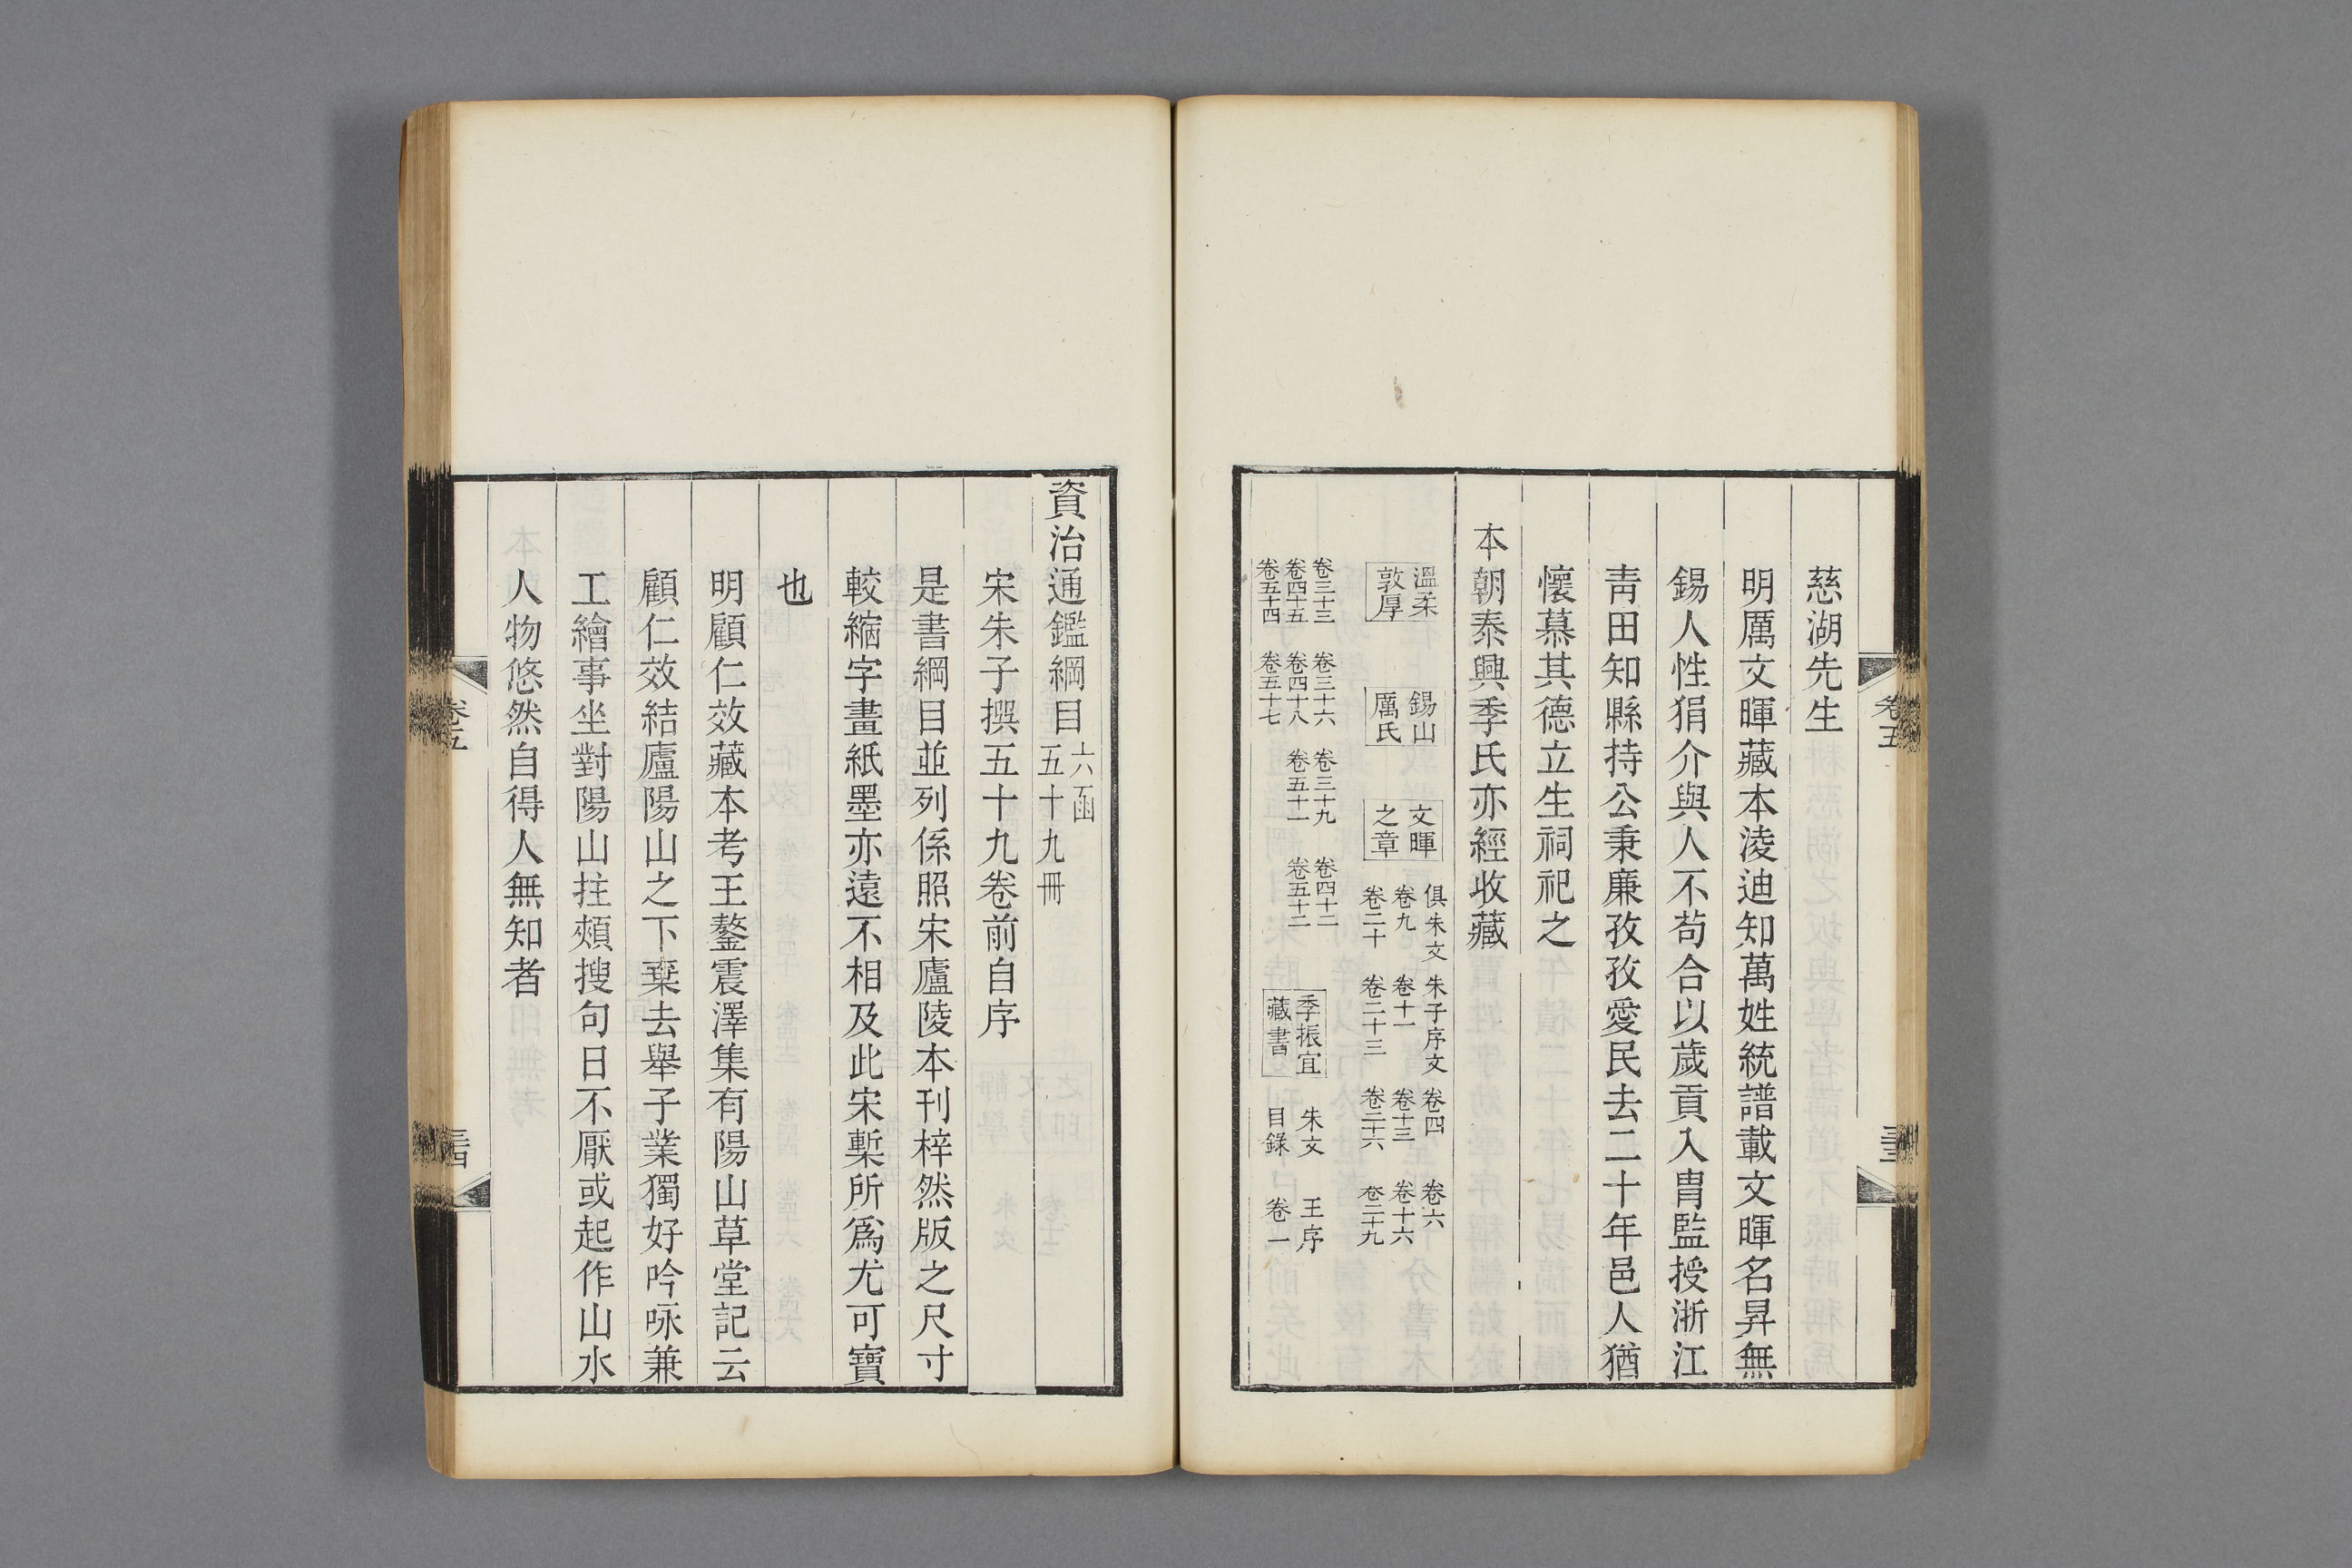 慈湖先生
明厲文暉藏本淩迪知萬姓統譜載文暉名昇無
錫人性狷介與人不苟合以歲貢入冑監授浙江
青田知縣持公秉廉孜孜愛民去二十年邑人猶
懷慕其德立生祠祀之
本朝泰興季氏亦經收藏
溫柔敦厚 錫山厲氏 文暉之章 俱朱文 朱子序文 卷四 卷六
卷九 卷十一 卷十三 卷十六
卷二十 卷二十三 卷二十六 卷二十九
卷三十三 卷三十六 卷三十九 卷四十二
卷四十五 卷四十八 卷五十一 卷五十二
卷五十四 卷五十七
季振宜藏書 朱文 王序
目錄 卷一
卷五
三十三
資治通鑑綱目 六函
五十九冊
宋朱子撰五十九卷前自序
是書綱目並列係照宋廬陵本刊梓然版之尺寸
較縮字畫紙墨亦遠不相及此宋槧所爲尤可寶
也
明顧仁效藏本考王鏊震澤集有陽山草堂記云
顧仁效結廬陽山之下棄去舉子業獨好吟咏兼
工繪事坐對陽山拄頰搜句日不厭或起作山水
人物悠然自得人無知者
卷五
三十四